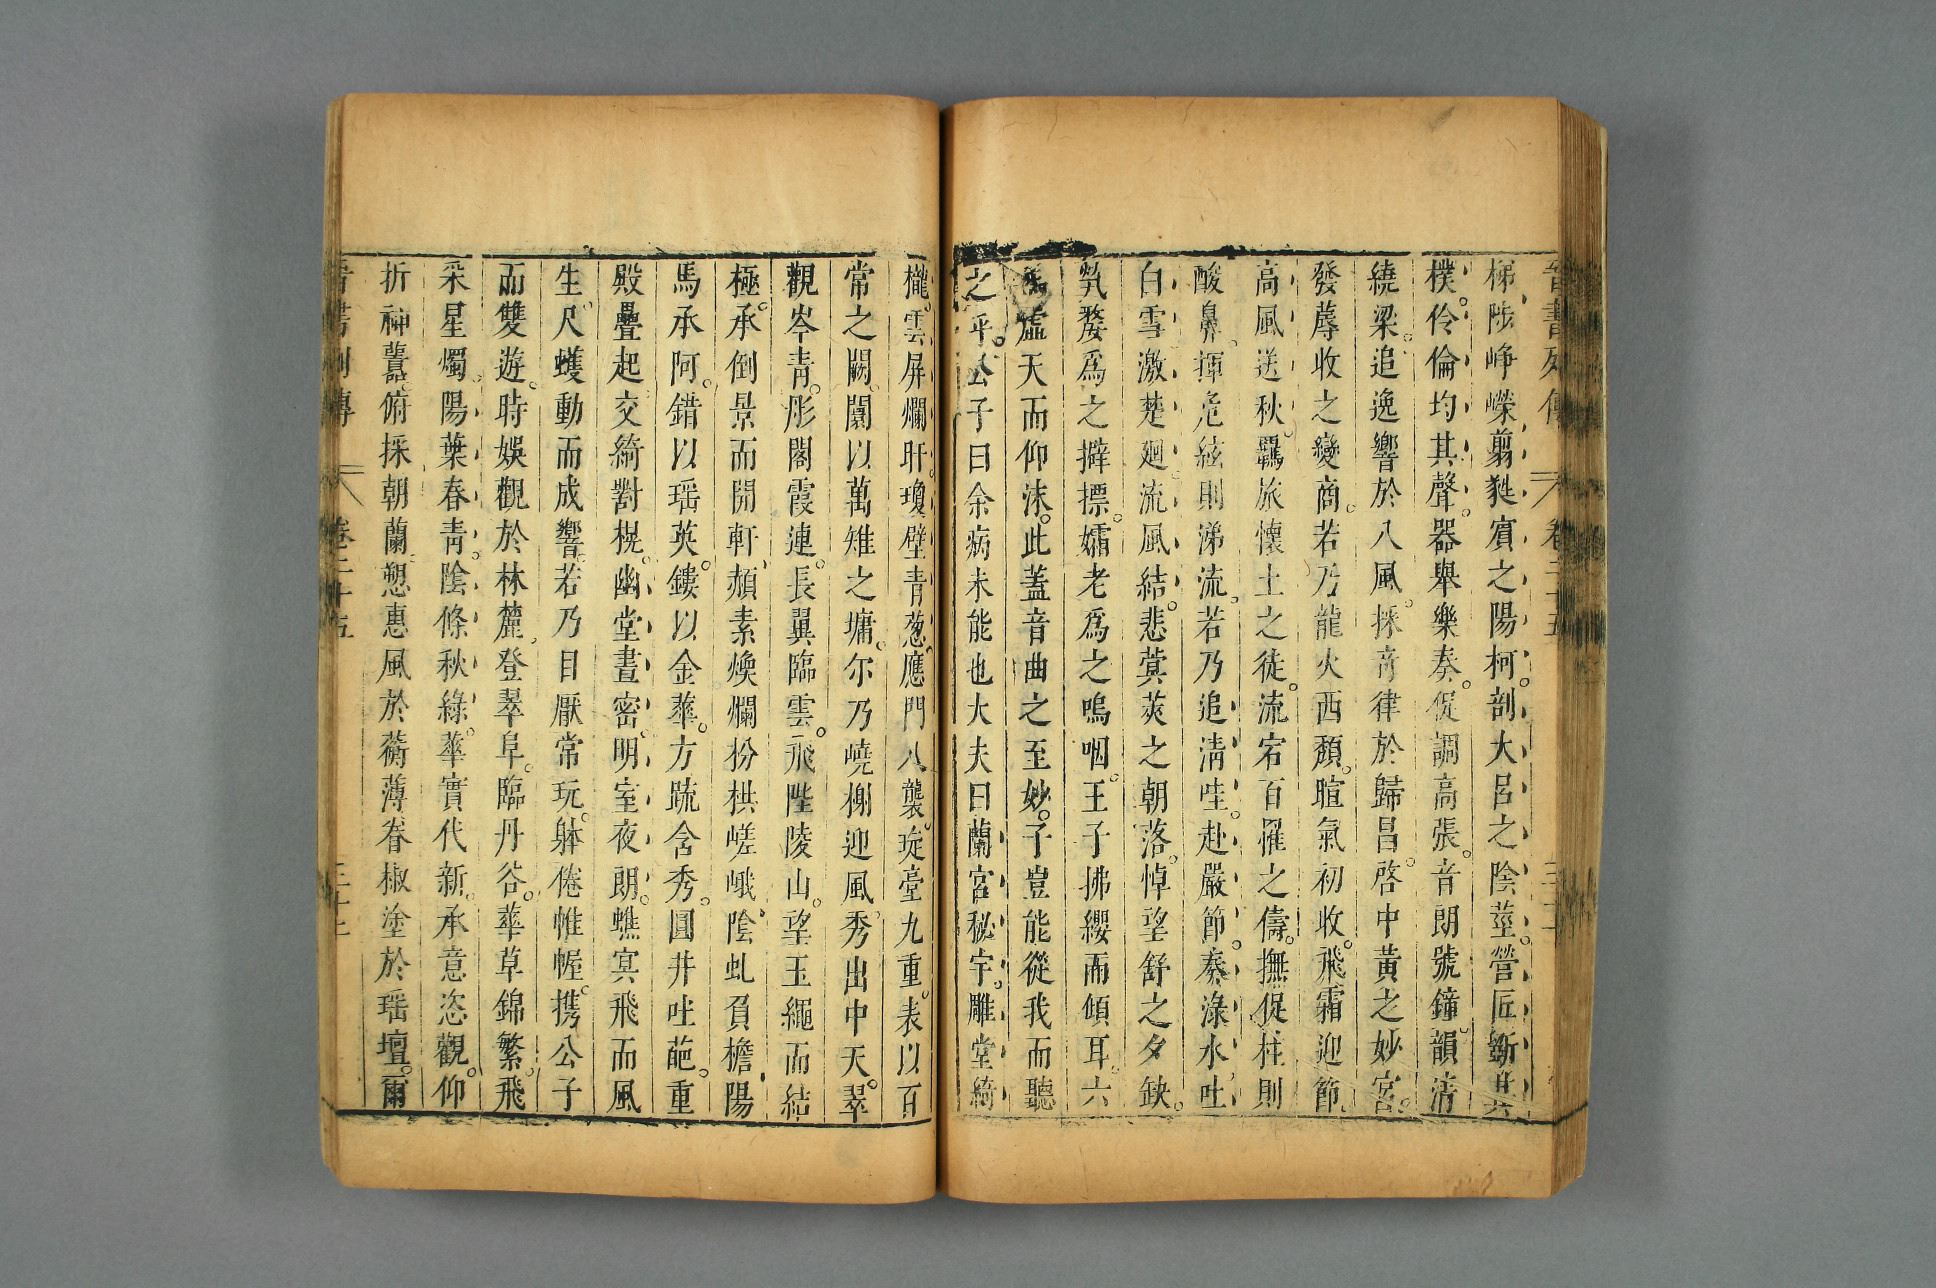 晉書列傳 卷二十五
梯陟崢嶸翦㽔賓之陽柯。剖大呂之陰莖。營匠斲其
樸。伶倫均其聲。器舉樂奏。促調高張。音朗號鐘。韻清
繞梁。追逸響於八風。採奇律於歸昌。啓中黃之妙宮。
發蓐收之變商。若乃龍火西頹。暄氣初收。飛霜迎節。
高風送秋。羈旅懷土之徒。流宕百罹之儔。撫促柱則
酸鼻。揮危絃則涕流。若乃追清哇。赴嚴節。奏淥水。吐
白雪。激楚廻。流風結。悲蓂莢之朝落。悼望舒之夕缺。
煢嫠爲之擗摽。孀老爲之嗚咽。王子拂纓而傾耳。六
馬噓天而仰沫。此蓋音曲之至妙。子豈能從我而聽
之乎。公子曰余病未能也大夫曰蘭宮秘宇。雕堂綺
櫳。雲屏爛旰。瓊壁青葱。應門八襲。琁臺九重。表以百
常之闕。闤以萬雉之墉。尔乃嶢榭迎風。秀出中天。翠
觀岑青。彤閣霞連。長翼臨雲。飛陛陵山。望玉繩而結
極。承倒景而開軒。頳素煥爛。枌栱嵯峨。陰虬負檐。陽
馬承阿。錯以瑶英。鏤以金華。方疏含秀。圓井吐葩。重
殿疊起。交綺對榥。幽堂晝密。明室夜朗。蟭冥飛而風
生。尺蠖動而成響。若乃目厭常玩。躰倦帷幄。携公子
而雙遊。時娛觀於林麓。登翠阜。臨丹谷。華草錦繁。飛
采星燭。陽葉春青。陰條秋綠。華實代新。承意恣觀。仰
折神虈。俯採朝蘭。愬惠風於蘅薄。眷椒塗於瑶壇。爾
晉書列傳 卷二十五